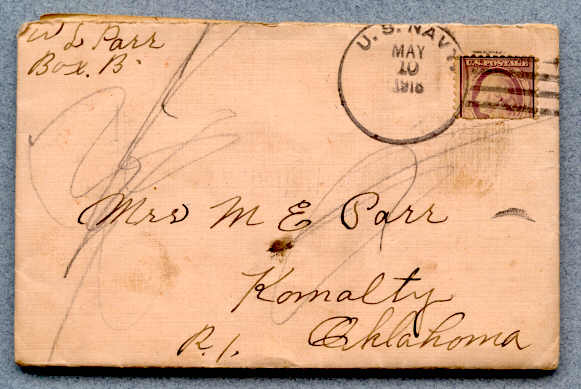 W L Parr
Box. B.
U. S. NAVY
MAY
10
1918
U.S. POSTAGE
Mrs M E Parr
Komalty
Oklahoma
R. 1.